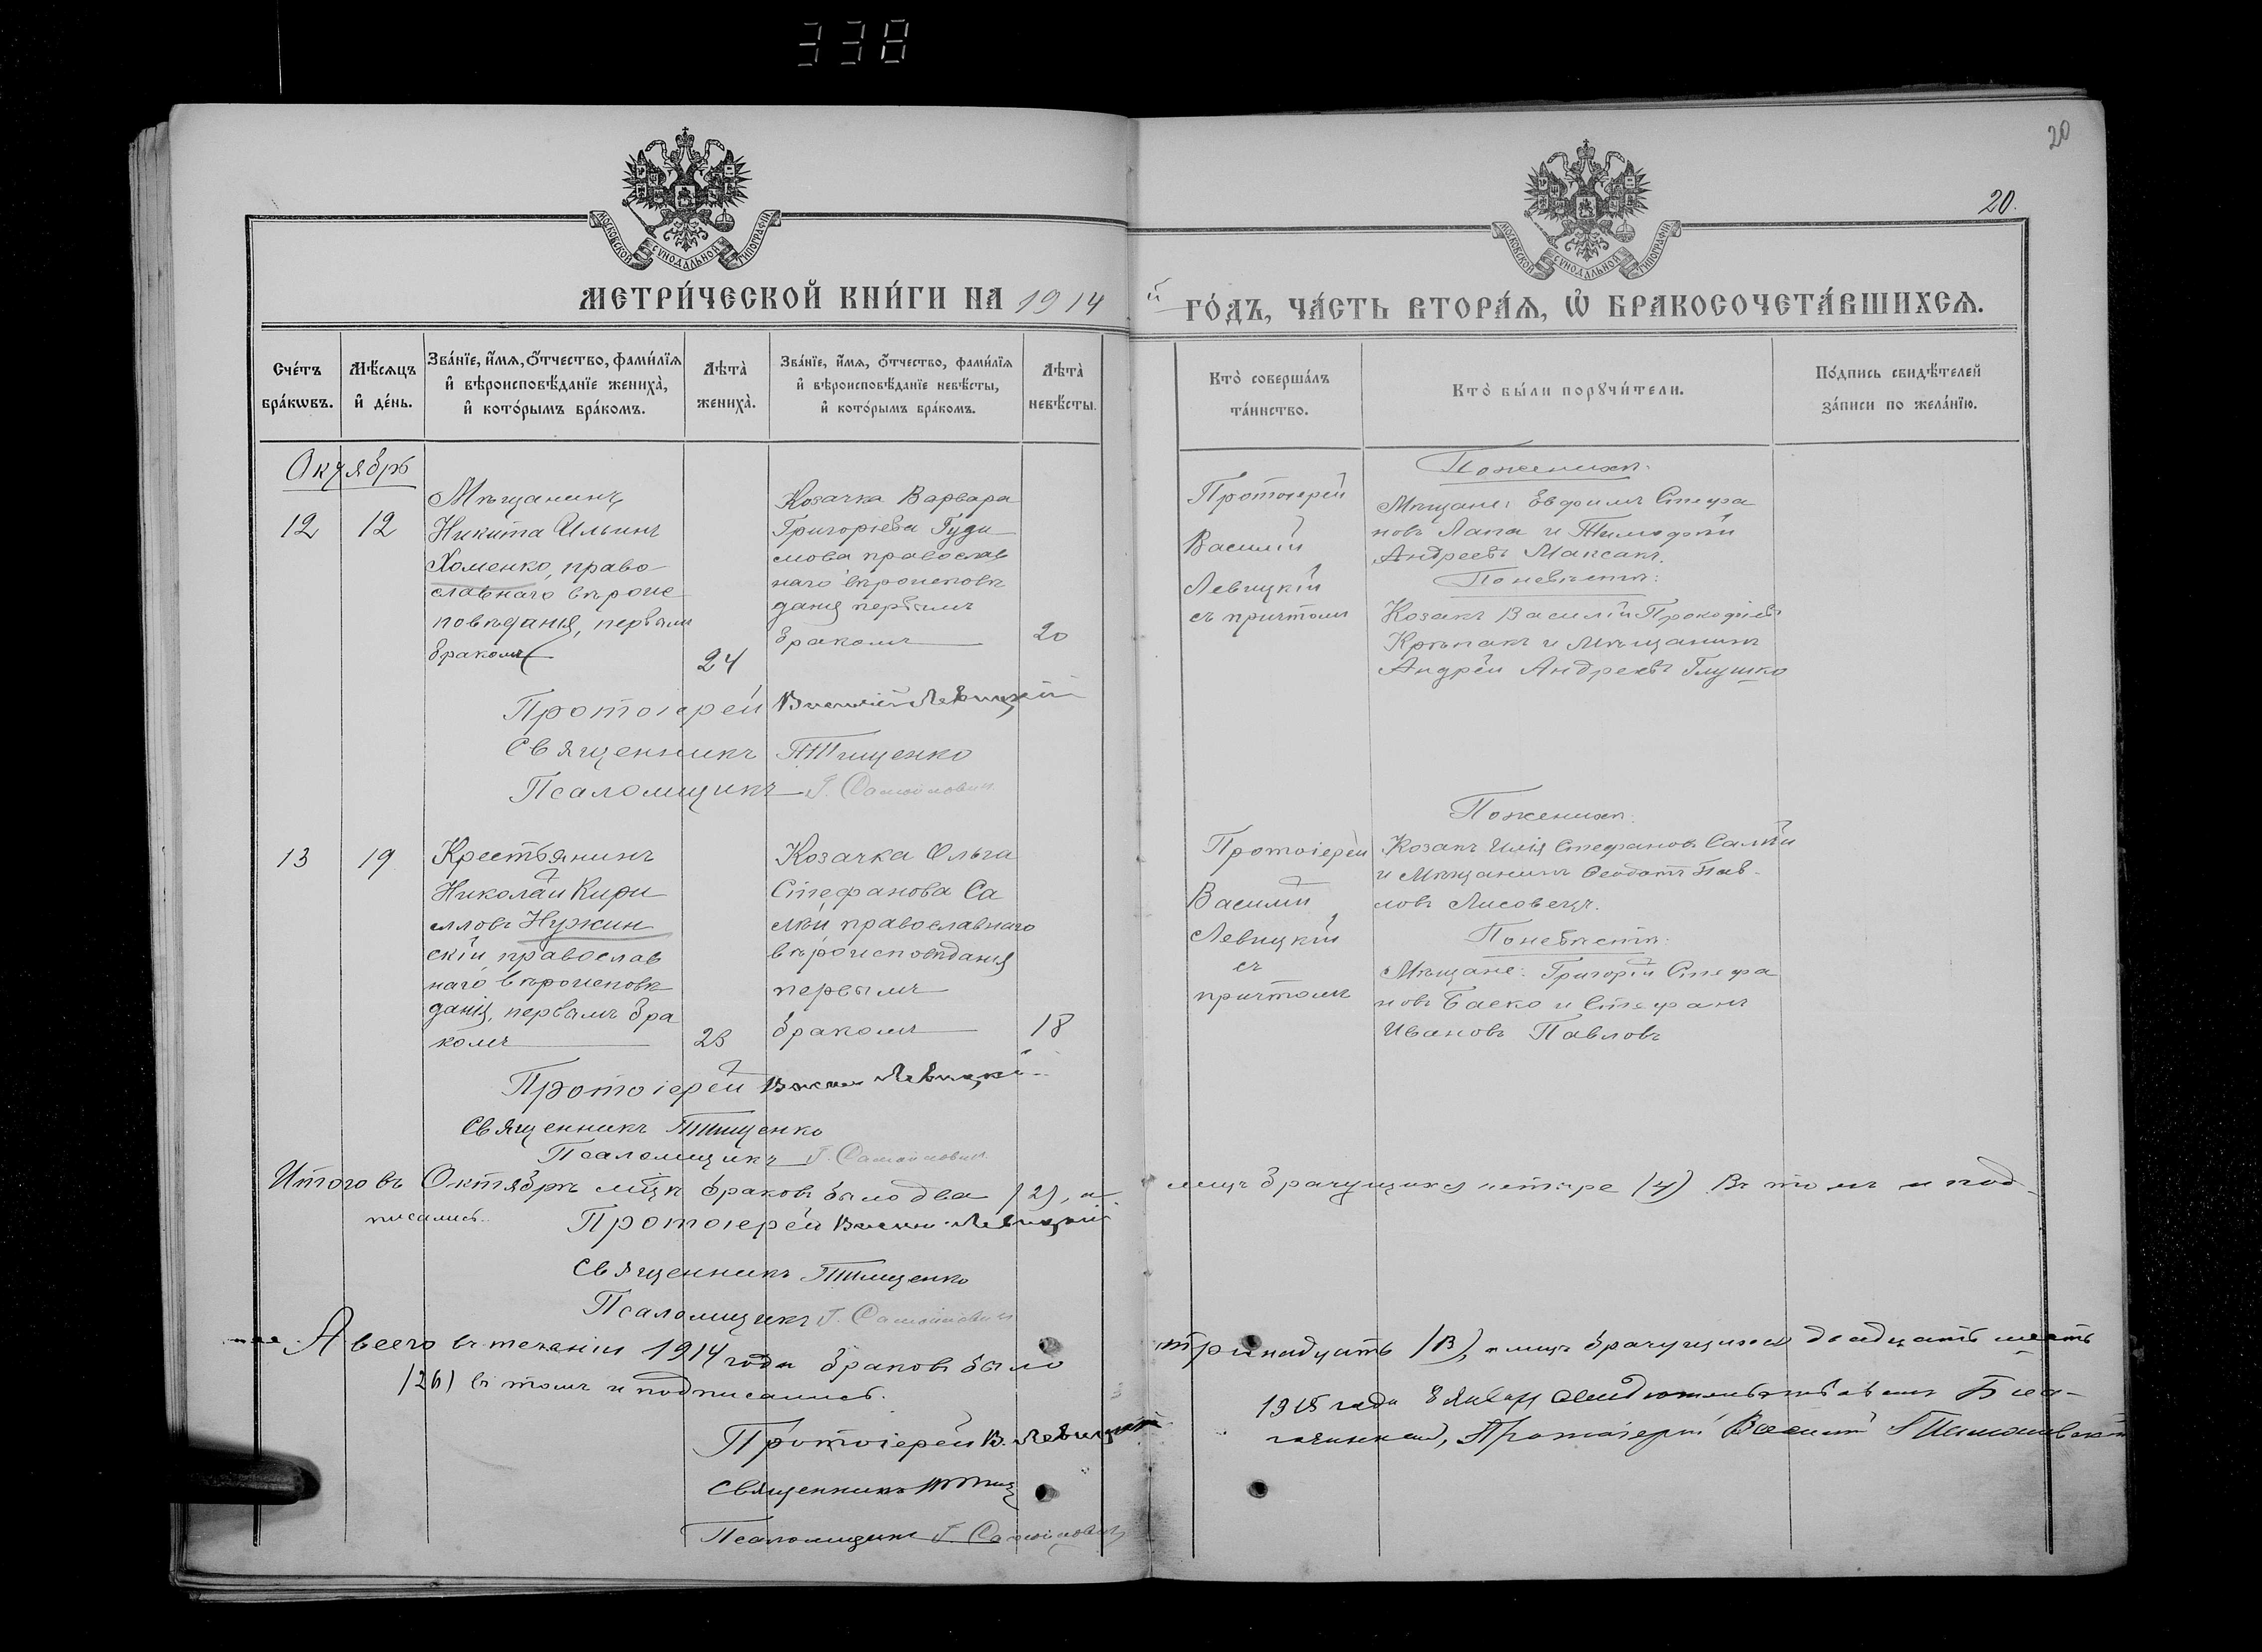 338
20
20.
МОСКОВСКОЙ СѴНОДАЛЬНОЙ ТИПОГРАФІИ
МОСКОВСКОЙ СѴНОДАЛЬНОЙ ТИПОГРАФІИ
МЕТРИ́ЧЕСКОЙ КНИ́ГИ НА 1914
й ГО́ДЪ, ЧА́СТЬ ВТОРА́Ѧ, Ѽ БРАКОСОЧЕТА́ВШИХСѦ.
Сче́тъ бра́кѡвъ.
Мѣ́сѧцъ и҆ де́нь.
Зва́нїе, и҆́мѧ, ѻ҆́тчество, фами́лїѧ и҆ вѣроисповѣ́данїе жениха̀, и҆ кото́рымъ бра́комъ.
Лѣта̀ жениха̀.
Зва́нїе, и҆́мѧ, ѻ҆́тчество, фами́лїѧ и҆ вѣроисповѣ́данїе невѣ́сты, и҆ кото́рымъ бра́комъ.
Лѣта̀ невѣ́сты.
Кто̀ соверша́лъ та́инство.
Кто̀ бы́ли порꙋчи́тели.
По́дпись свидѣ́телей за́писи по жела́нїю.
Октябрь
12
12
Мѣщанинъ
Никита Ильинъ
Хоменко, право-
славнаго вѣроис
повѣданія, первымъ
бракомъ
24
Козачка Варвара
Григоріева Гуди-
мова православ
наго вѣроисповѣ
данія первымъ
бракомъ
20
Протоіерей
Василій
Левицкій
съ причтомъ
По женихѣ:
Мѣщане: Евфимъ Стефа
новъ Лапа и Тимофей
Андреевъ Максакъ.
По невѣстѣ:
Козакъ Василій Прокофіевъ
Крѣпакъ и Мѣщанинъ
Андрей Андреевъ Глушко
Протоіерей Василій Левицкій
Священникъ Тищенко
Псаломщикъ Г. Самойлович
13
19
Крестьянинъ
Николай Кири
лловъ Нужин
скій православ
наго вѣроисповѣ
данія, первымъ бра
комъ
23
Козачка Ольга
Стефанова Са
лѣй православнаго
вѣроисповѣданія
первымъ
бракомъ
18
Протоіерей
Василій
Левицкій
съ
причтомъ
По женихѣ:
Козакъ Илія Стефановъ Салѣй
и Мѣщанинъ Феодотъ Пав-
ловъ Лисовецъ.
По невѣстѣ:
Мѣщане: Григорій Стефа
новъ Баско и Стефанъ
Ивановъ Павловъ
Протоіерей Василій Левицкій
Священникъ Тищенко
Псаломщикъ Г. Самойлович
Итого въ Октябрѣ мцѣ браковъ было два (2), а лицъ брачущихся четыре (4) Въ томъ и под-
писались.
Протоіерей Василій Левицкій
Священникъ Тищенко
Псаломщикъ Г. Самойлович
А всего въ теченіи 1914 года браковъ было тринадцать (13), а лицъ брачущихся двадцать шесть
(26) въ томъ и подписались.
Протоіерей В. Левицкій
Священникъ
Псаломщикъ Г. Самойлович
1915 года 8 Января свидѣтельствовалъ Бла-
гочинный, Протоіерей Василій